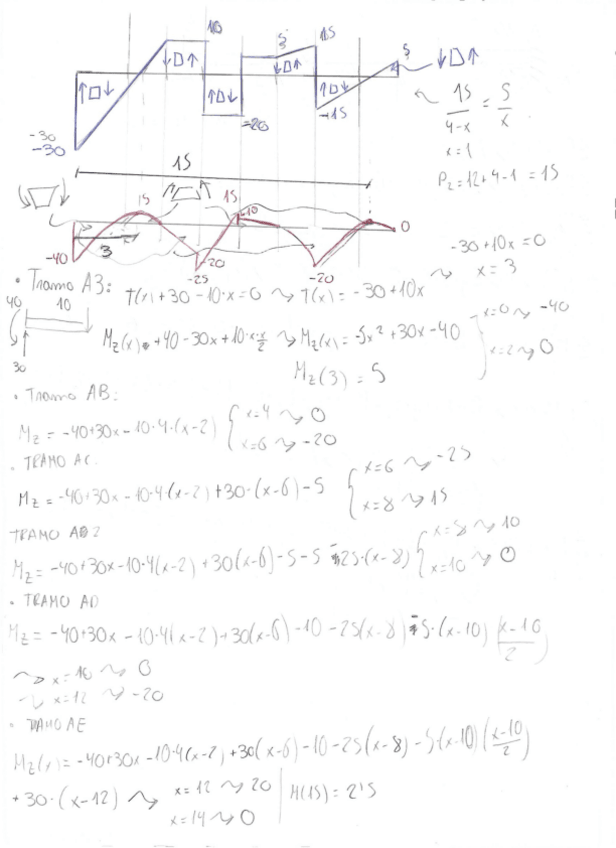 10
15
5
5
-30
-30
-20
-15
15/(4-x) = 5/x
x=1
P2=12+4-1=15
15
15
15
10
0
3
-40
-20
-25
-20
-30+10x=0
x=3
· Tramo A3: T(x)+30-10·x=0 ⇝ T(x)=-30+10x
40 10
30
Mz(x) +40-30x+10·x·x/2 ⇝ Mz(x)=-5x²+30x-40 { x=0 ⇝ -40
x=2 ⇝ 0
Mz(3)=5
· Tramo AB:
Mz = -40+30x-10·4·(x-2) { x=4 ⇝ 0
x=6 ⇝ -20
· TRAMO AC
Mz = -40+30x-10·4(x-2)+30·(x-6)-5 { x=6 ⇝ -25
x=8 ⇝ 15
TRAMO AD2
Mz = -40+30x-10·4(x-2)+30(x-6)-5-5-25·(x-8) { x=8 ⇝ 10
x=10 ⇝ 0
· TRAMO AD
Mz = -40+30x-10·4(x-2)+30(x-6)-10-25(x-8)-5·(x-10)(x-10/2)
⇝ x=10 ⇝ 0
⇝ x=12 ⇝ -20
· TRAMO AE
Mz(x) = -40+30x-10·4(x-2)+30(x-6)-10-25(x-8)-5·(x-10)(x-10/2)
+30·(x-12) ⇝ x=12 ⇝ 20 | M(15)=2'5
x=14 ⇝ 0